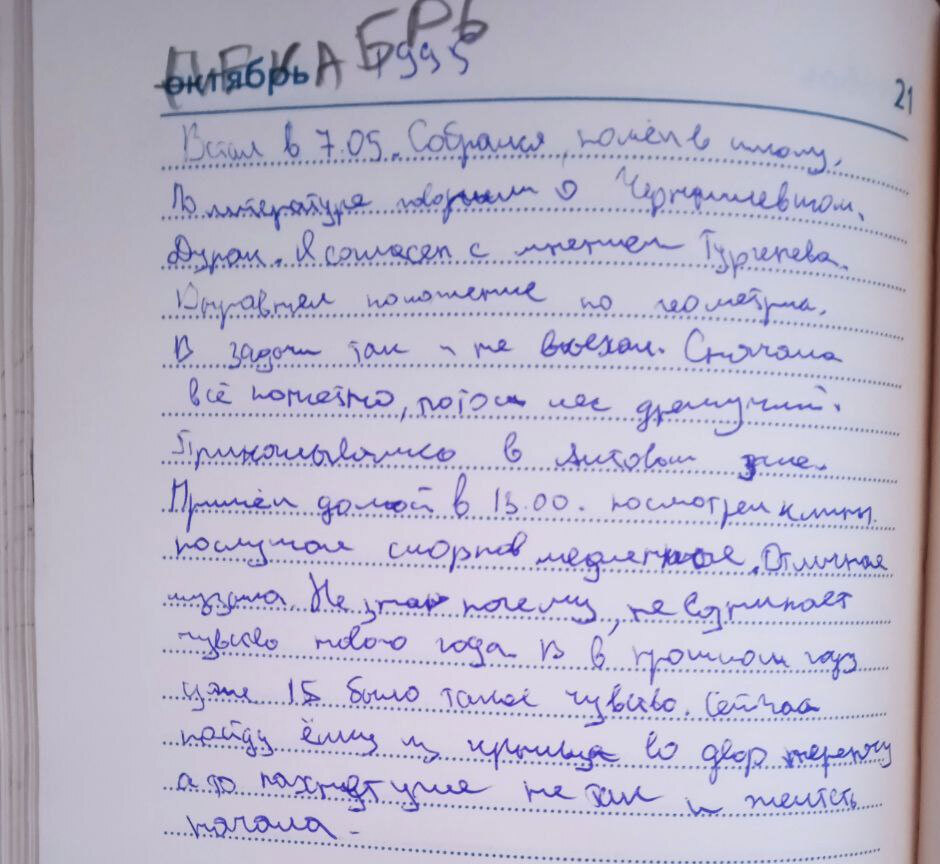 ДЕКАБРЬ
октябрь 1995
21
Встал в 7.05. Собрался, пошёл в школу.
По литературе говорили о Чернышевском.
Дурак. Я согласен с мнением Тургенева.
Выправил положение по геометрии.
В задачи так и не въехал. Сначала
всё понятно, потом лес дремучий.
Прикалывались в
Пришёл домой в 13.00. посмотрел клипы
послушал скорпов медленное. Отличная
музыка. Не знаю почему, не возникает
чувство нового года. В в прошлом году
уже 15 было такое чувство. Сейчас
пойду ёлку из во двор перенесу
а то пахнет уже не так и желтеть
начала.